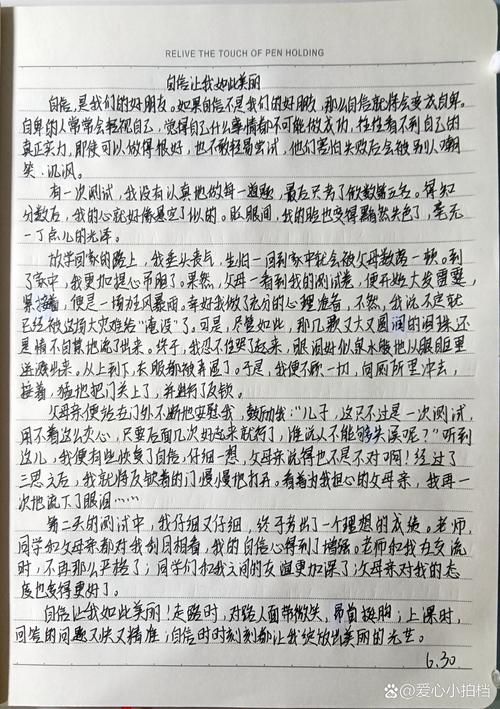 RELIVE THE TOUCH OF PEN HOLDING
自信让我如此美丽
自信,是我们的好朋友。如果自信不是我们的好朋友,那么自信就将会变成自卑。
自卑的人常常会轻视自己,觉得自己什么事情都不可能做成功,往往看不到自己的
真正实力,即使可以做得很好,也不敢轻易尝试,他们害怕失败后会被别人嘲
笑、讥讽。
有一次测试,我没有认真地做每一道题,最后只考了倒数第五名。得知
分数后,我的心就好像悬空了似的。眨眼间,我的脸也变得黯然失色了,毫无
一丁点儿的光泽。
放学回家的路上,我垂头丧气,生怕一回到家中就会被父母数落一顿。到
了家中,我更加提心吊胆了。果然,父母一看到我的测试卷,便开始大发雷霆,
接着,便是一场狂风暴雨。幸好我做了充分的心理准备,不然,我说不定就
已经被这场大灾难给“淹没”了。可是,尽管如此,那几颗又大又圆润的泪珠还
是情不自禁地流了出来。终于,我忍不住哭了起来,眼泪好似泉水般地从眼眶里
迸溅出来。从上到下,衣服都被弄湿了。于是,我便不顾一切,向厕所里冲去,
接着,猛地把门关上了,并进行了反锁。
父母亲便站在门外不断地安慰我,鼓励我:“儿子,这只不过是一次测试,
用不着这么灰心,只要后面几次好起来就行了,谁说人不能够失误呢?”听到
这儿,我便有些恢复了自信,仔细一想,父母亲说得也不是不对啊!经过了
三思之后,我就将反锁着的门慢慢地打开。看着为我担心的父母亲,我再一
次地流下了眼泪……
第二天的测试中,我仔细又仔细,终于考出了一个理想的成绩。老师,
同学和父母亲都对我刮目相看,我的自信心得到了增强。老师和我在交流
时,不再那么严格了;同学们和我之间的友谊更加深了;父母亲对我的态
度也变得更好了。
自信让我如此美丽!走路时,对路人面带微笑,昂首挺胸;上课时,
回答的问题又快又精准;自信时时刻刻都让我绽放出美丽的光芒。
6.30
爱心小拍档